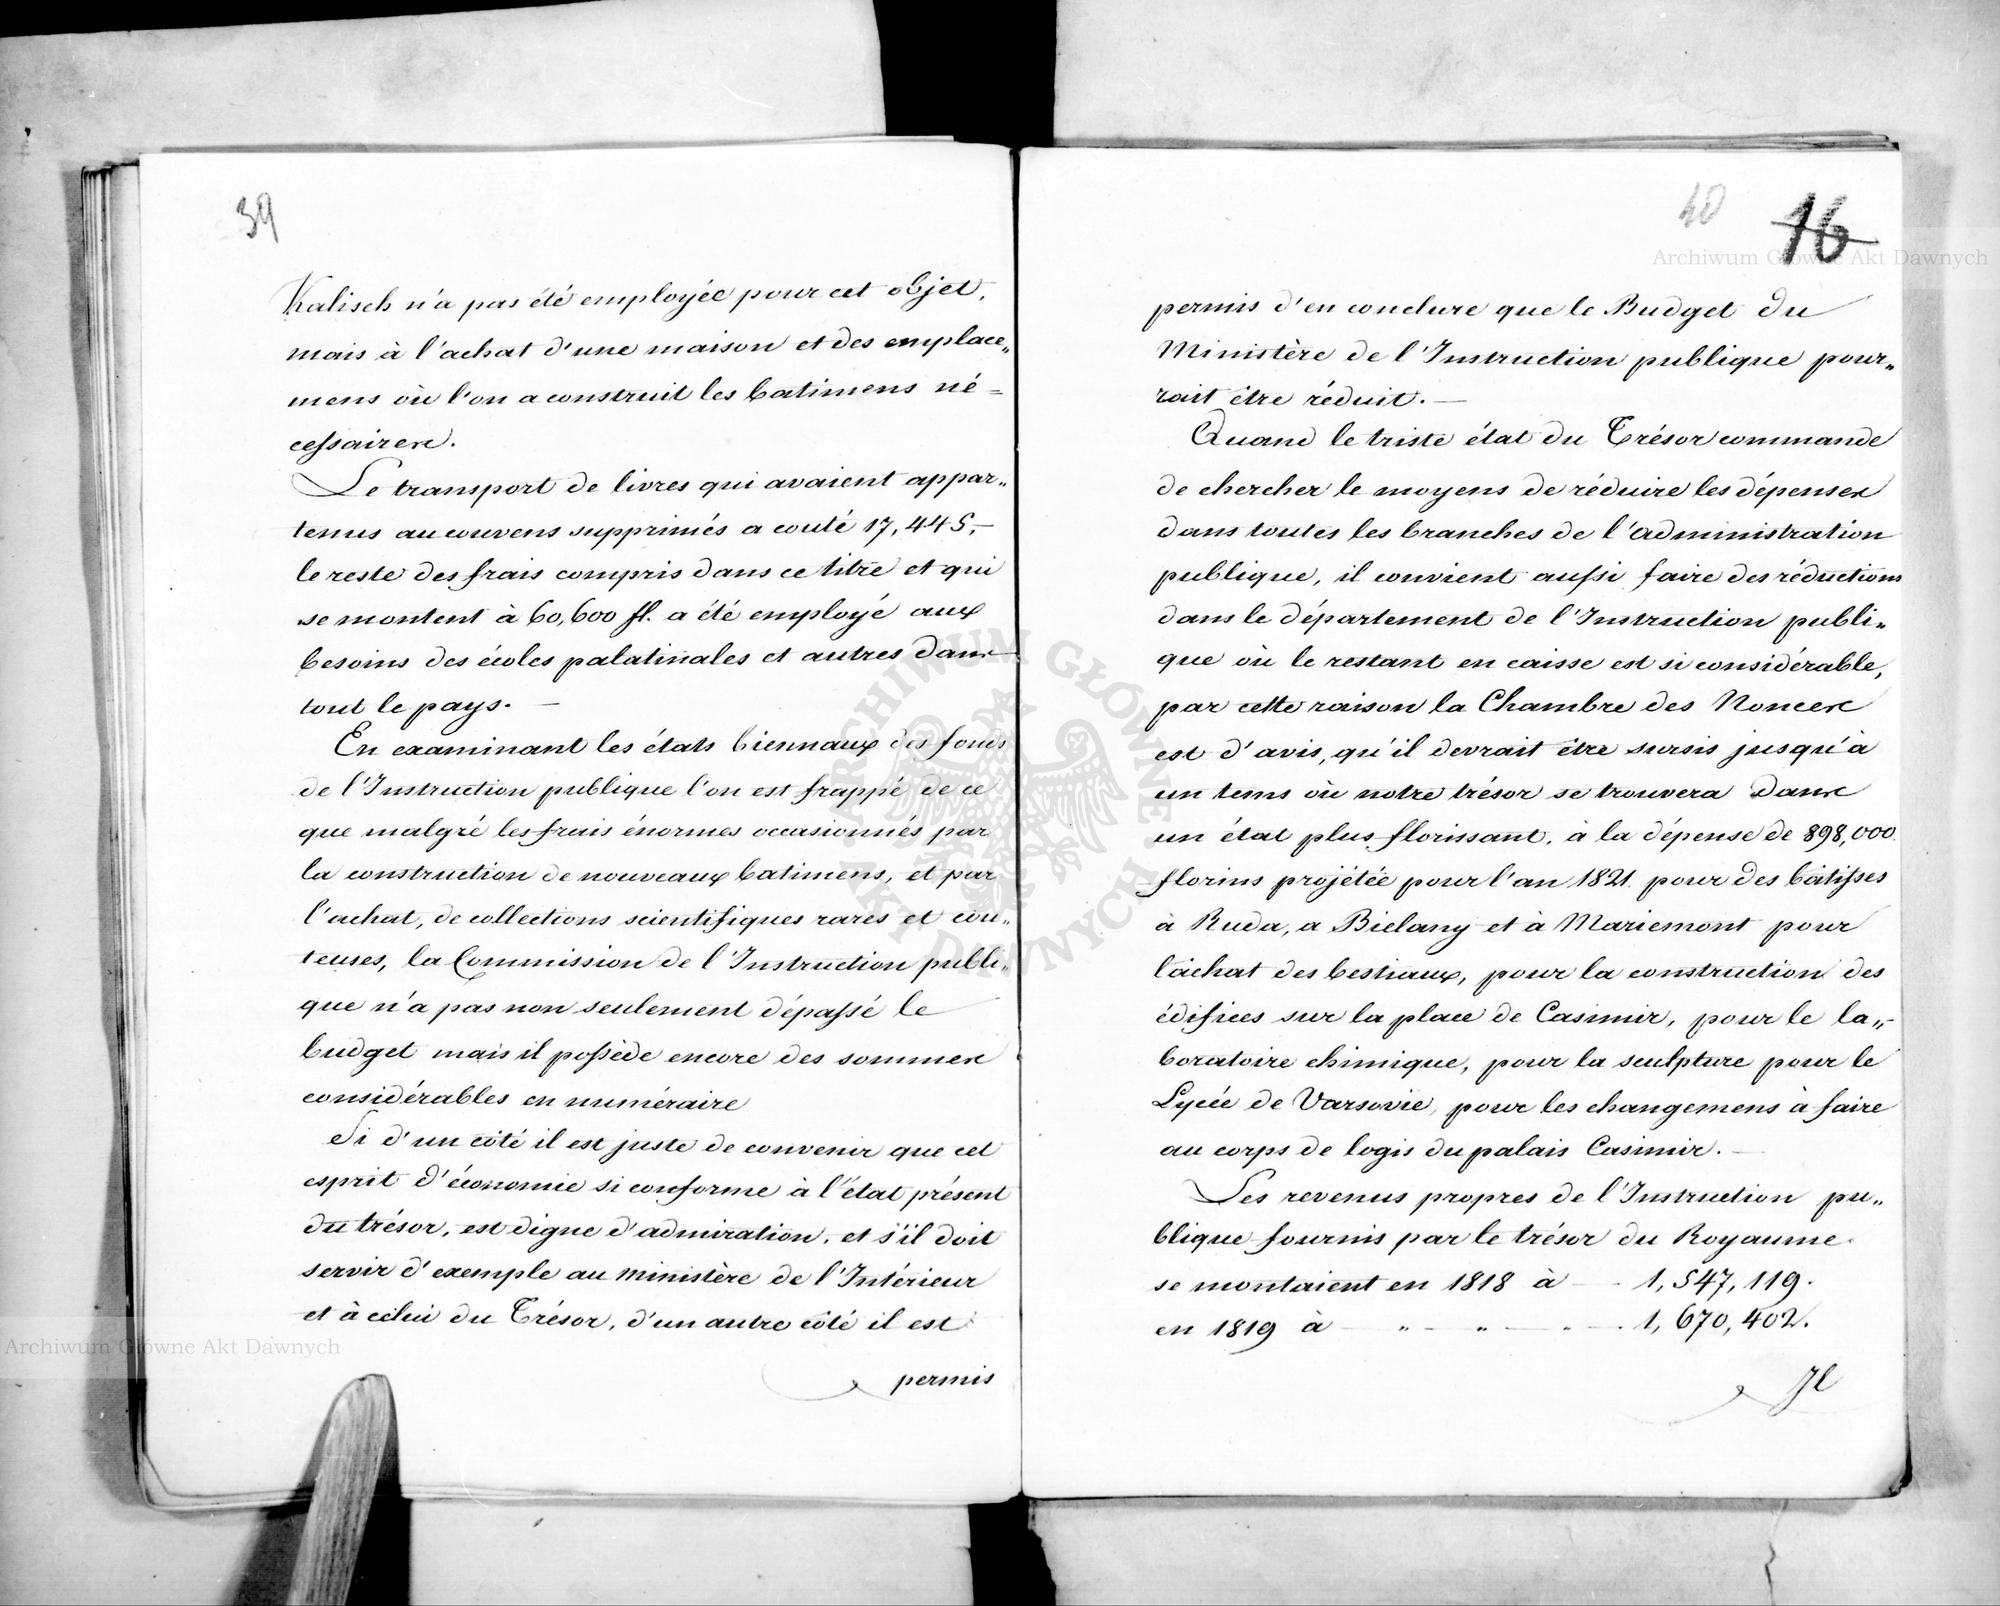 39
Kalisch n'a pas été employée pour cet objet,
mais à l'achat d'une maison et des emplace„
mens où l'on a construit les batimens né=
cessaires.
Le transport de livres qui avaient appar„
tenus au couvens supprimés a couté 17,445,—
le reste des frais compris dans ce titre et qui
se montent à 60,600 fl. a été employé aux
besoins des écoles palatinales et autres dans
tout le pays. —
En examinant les états biennaux des fonds
de l'Instruction publique l'on est frappé de ce
que malgré les frais énormes occasionnés par
la construction de nouveaux batimens, et par
l'achat, de collections scientifiques rares et cou„
teuses, la Commission de l'Instruction publi„
que n'a pas non seulement dépassé le
budget mais il possède encore des sommes
considérables en numéraire
Si d'un côté il est juste de convenir que cet
esprit d'économie si conforme à l'état présent
du trésor, est digne d'admiration, et s'il doit
servir d'exemple au ministère de l'Intérieur
et à celui du Trésor, d'un autre côté il est
permis
40 16
permis d'en conclure que le Budget du
Ministère de l'Instruction publique pour„
rait être réduit. —
Quand le triste état du Trésor commande
de chercher le moyens de réduire les dépenses
dans toutes les branches de l'administration
publique, il convient aussi faire des réductions
dans le département de l'Instruction publi„
que où le restant en caisse est si considérable,
par cette raison la Chambre des Nonces
est d'avis, qu'il devrait être sursis jusqu'à
un tems où notre trésor se trouvera dans
un état plus florissant, à la dépense de 898,000.
florins projétée pour l'an 1821. pour des bâtisses
à Ruda, a Bielany et à Mariemont pour
l'achat des bestiaux, pour la construction des
édifices sur la place de Casimir, pour le la„
boratoire chimique, pour la sculpture pour le
Lycée de Varsovie, pour les changemens à faire
au corps de logis du palais Casimir. —
Les revenus propres de l'Instruction pu„
blique fournis par le trésor du Royaume
se montaient en 1818 à — 1,547,119.
en 1819 à — „ — „ — „ — 1,670,402.
Il
Archiwum Główne Akt Dawnych
Archiwum Główne Akt Dawnych
ARCHIWUM GŁÓWNE AKT DAWNYCH